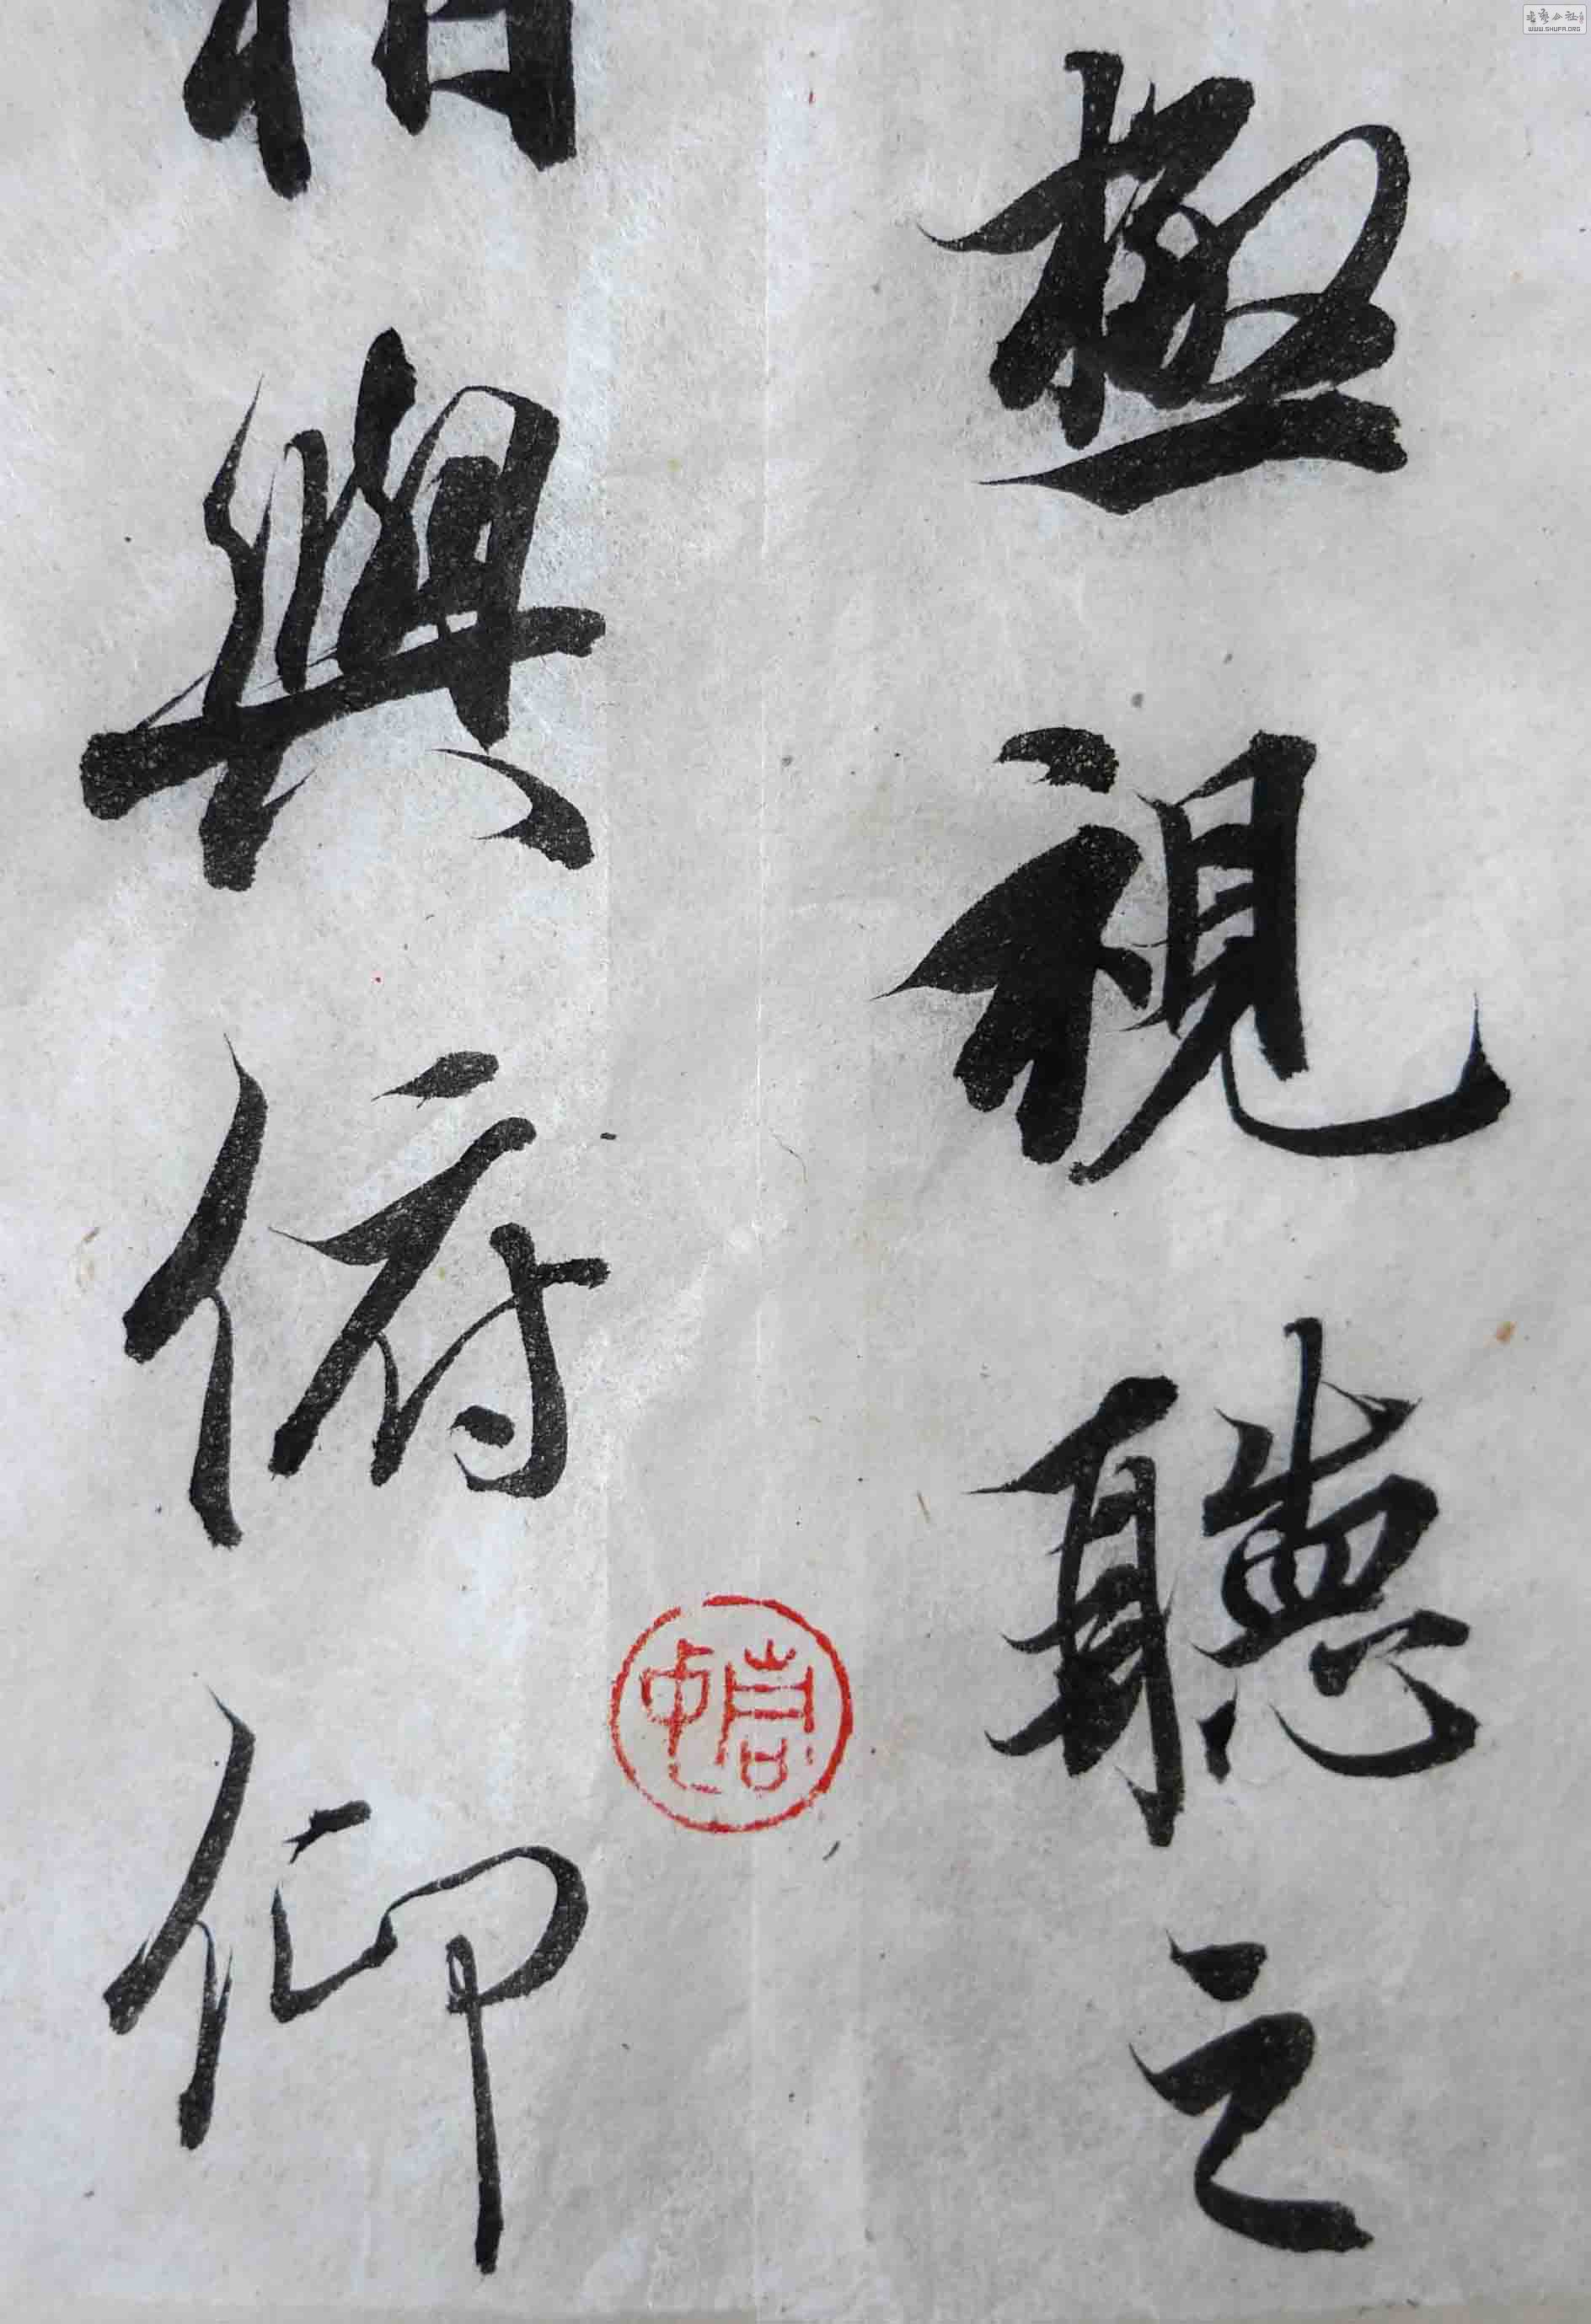 極視聽之
相與俯仰
WWW.SHUFA.ORG